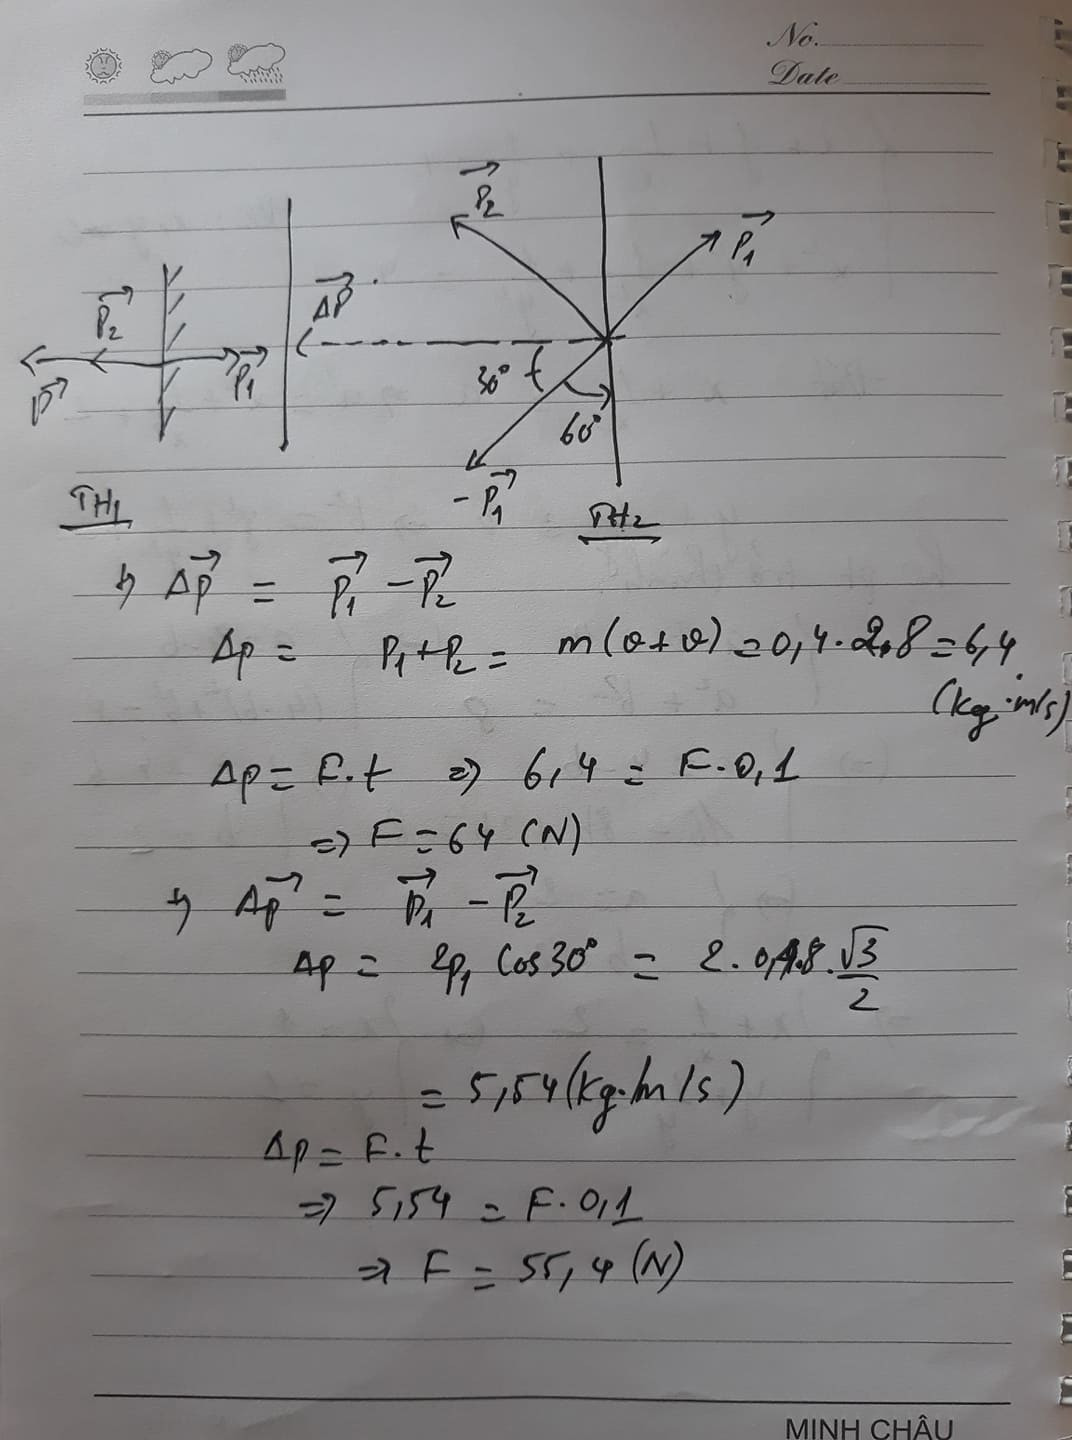 No.
Date
P₂→
P₁→
ΔP→
P₂→
P₁→
P→
30°
60°
-P₁→
TH1
TH2
ΔP→ = P₁→ - P₂→
Δp = P₁+P₂ = m(v+v) = 0,4.2.8 = 6,4
(kg.m/s)
Δp = F.t => 6,4 = F.0,1
=> F = 64 (N)
Δp→ = P₁→ - P₂→
Δp = 2p₁ cos30° = 2.0,4.8.√3/2
= 5,54 (kg.m/s)
Δp = F.t
=> 5,54 = F.0,1
=> F = 55,4 (N)
MINH CHÂU